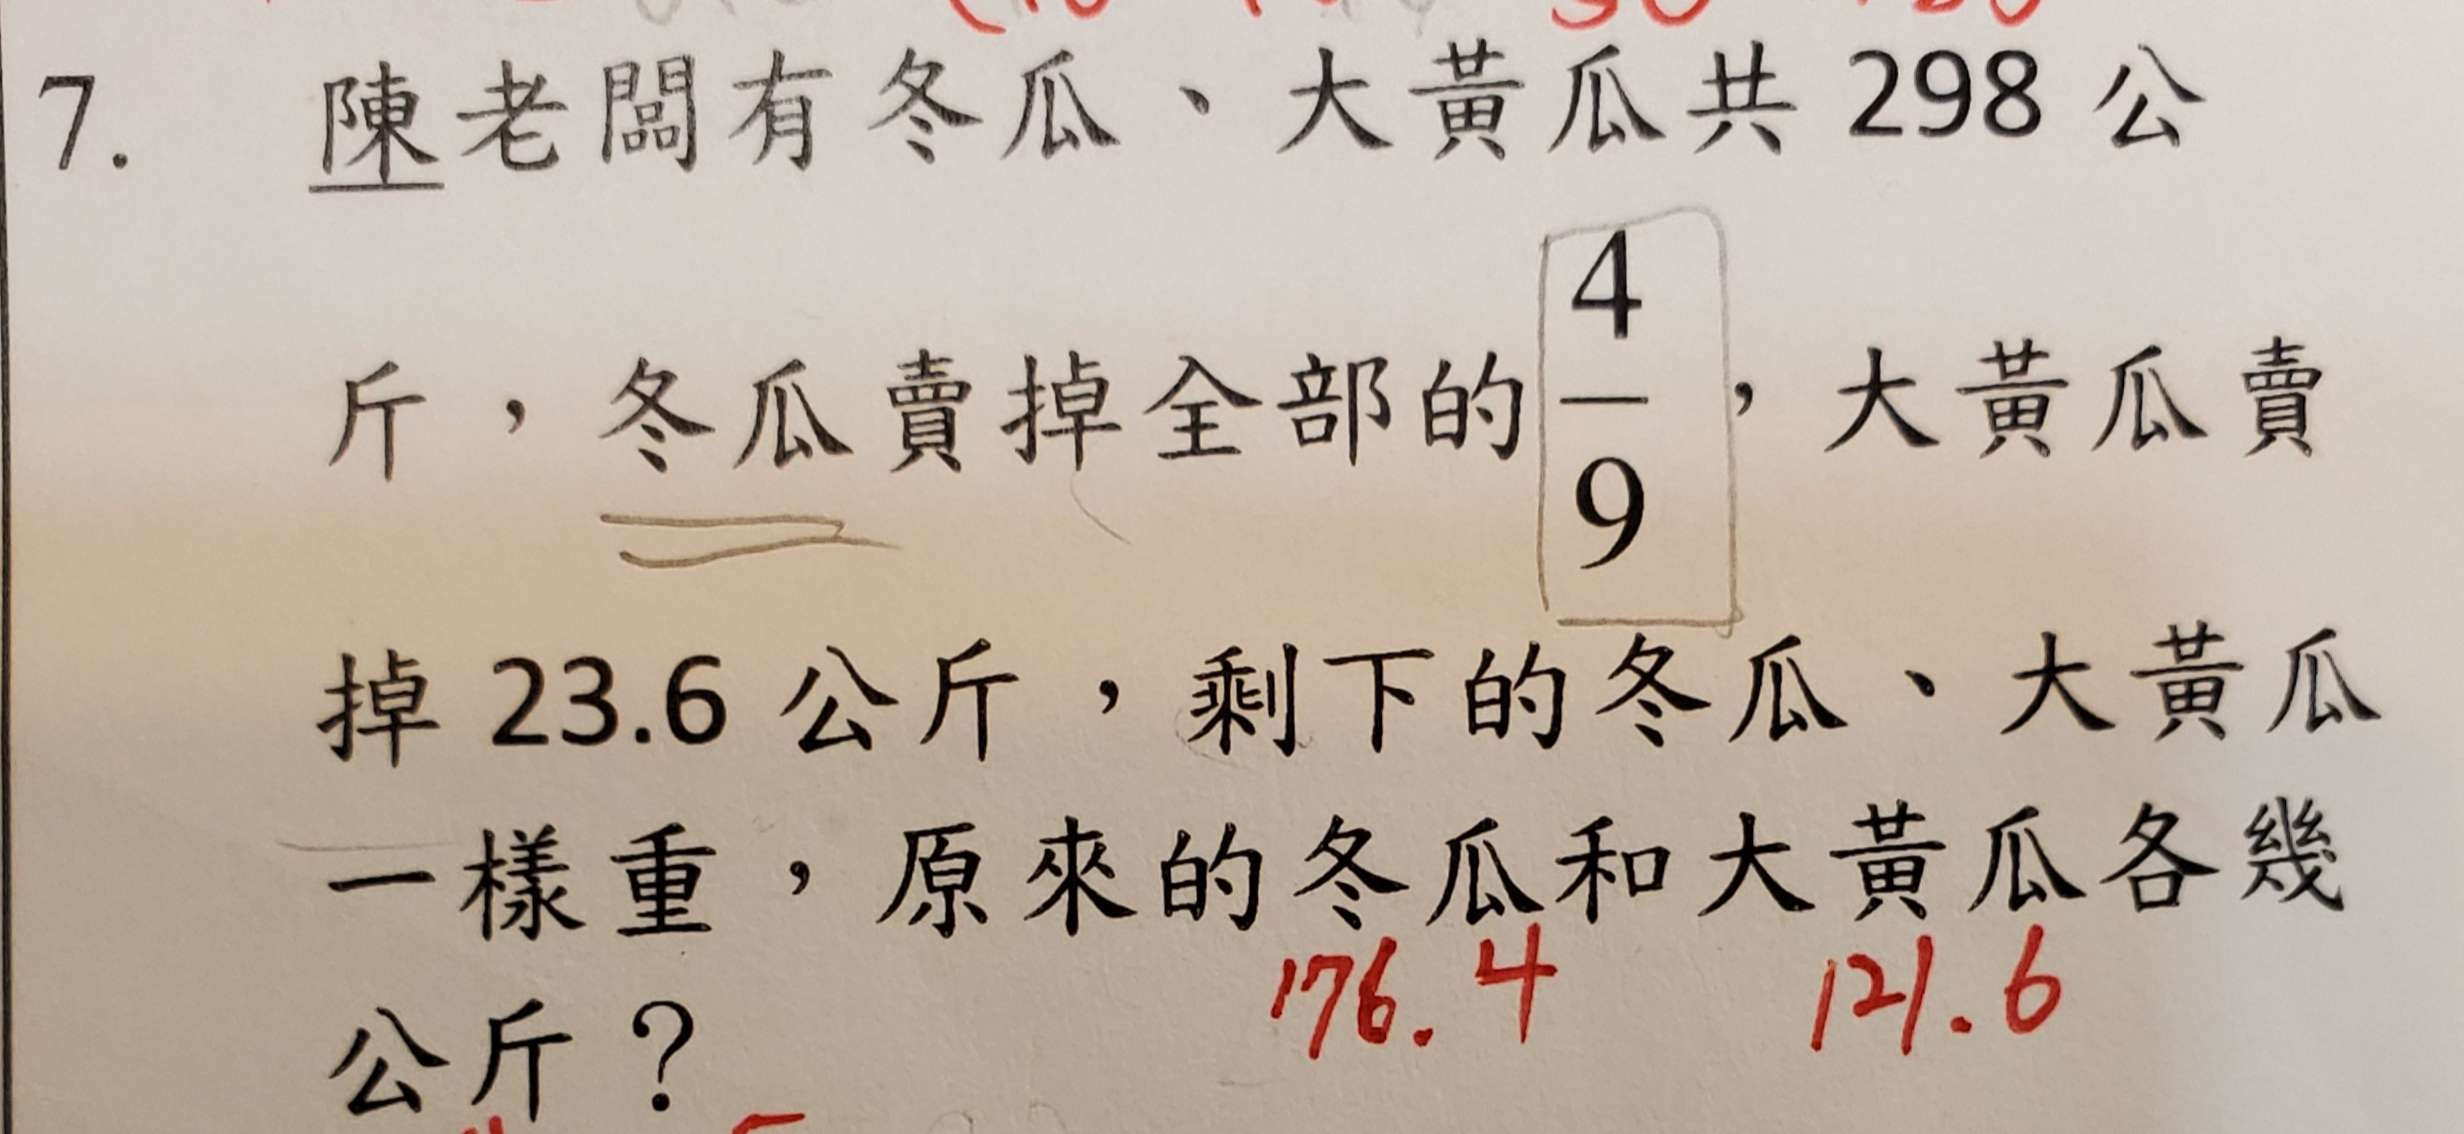 7. 陳老闆有冬瓜、大黃瓜共 298 公
斤，冬瓜賣掉全部的 4/9，大黃瓜賣
掉 23.6 公斤，剩下的冬瓜、大黃瓜
一樣重，原來的冬瓜和大黃瓜各幾
176.4 121.6
公斤？